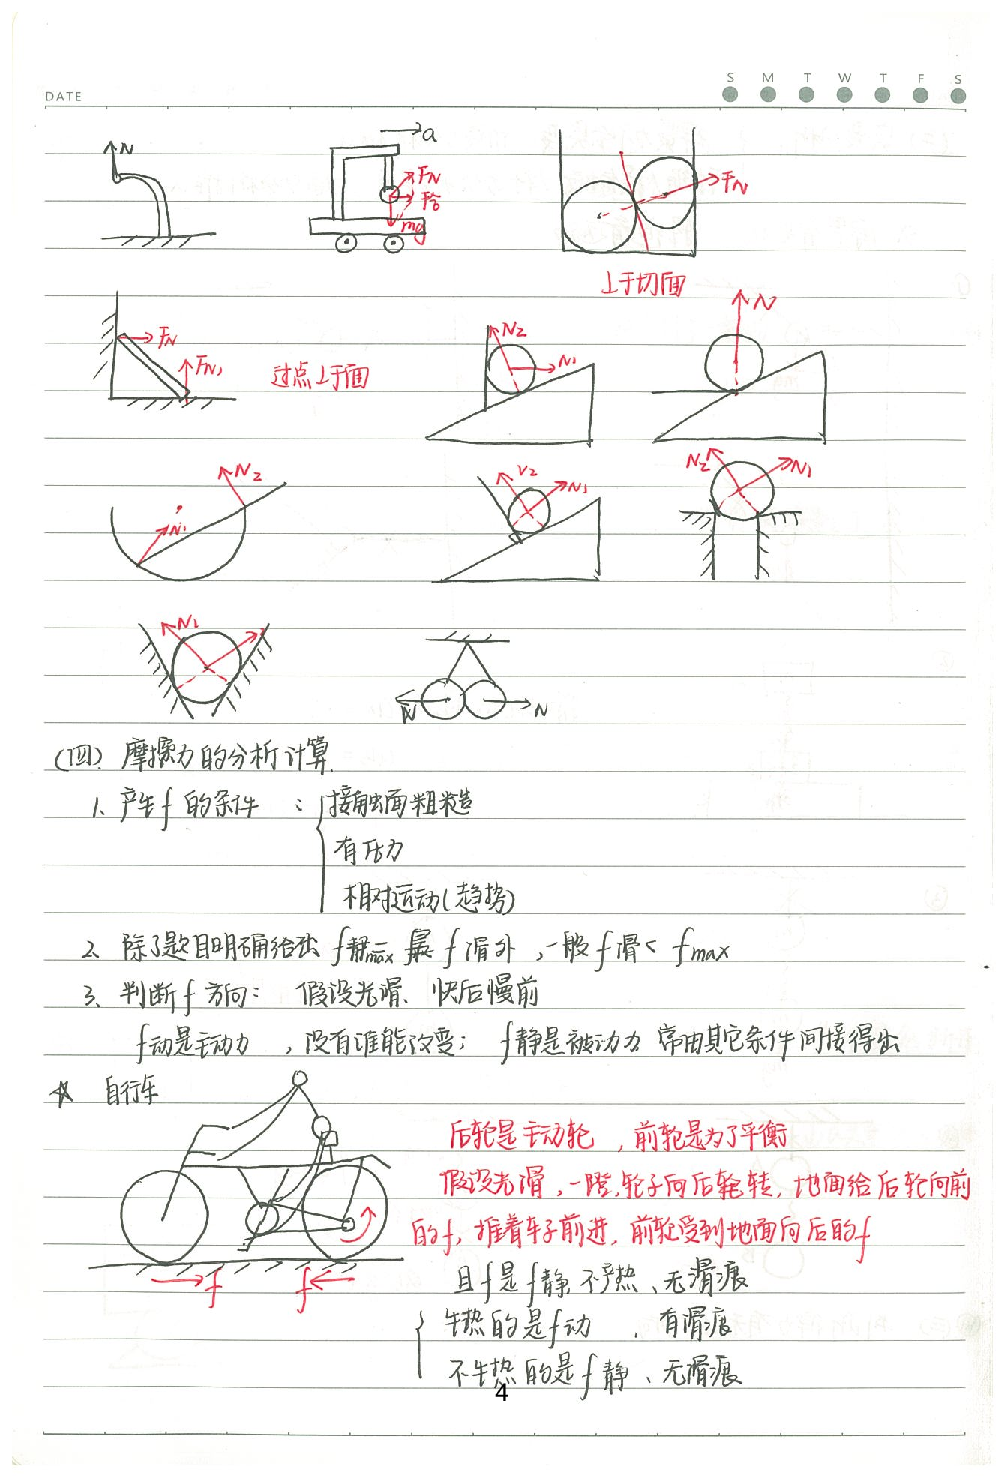 DATE
S M T W T F S
N
a
FN
F合
mg
FN
⊥于切面
FN
FN1
过点⊥于面
N2
N1
N
N2
N1
N2
N1
N2
N1
N2
N
N
(四) 摩擦力的分析计算
1、产生f的条件:
接触面粗糙
有压力
相对运动(趋势)
2、除了题目明确给出 f静max 是 f滑外, 一般f滑< fmax
3、判断f方向: 假设光滑、快后慢前
f动是主动力, 没有谁能改变; f静是被动力 常由其它条件间接得出
☆ 自行车
后轮是主动轮, 前轮是为了平衡
假设光滑, 一蹬, 轮子向后轮转, 地面给后轮向前
的f, 推着车子前进, 前轮受到地面向后的f
f f
且f是f静, 不产热、无滑痕
生热的是f动、有滑痕
不生热的是f静、无滑痕
4